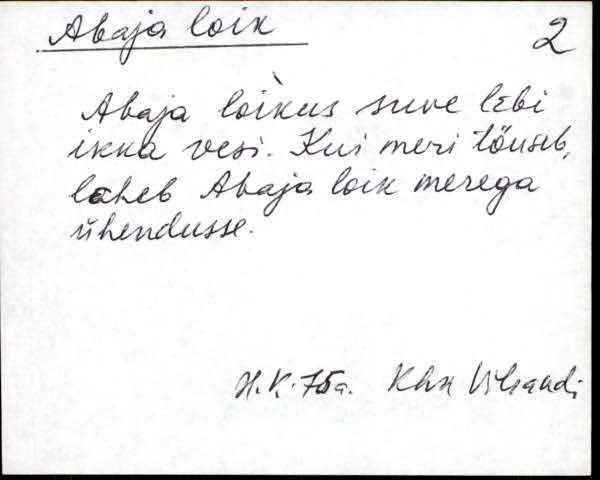 Abaja loik
2
Abaja loikus suve lebi
ikka vesi. Kui meri tõuseb,
laheb Abaja loik merega
ühendusse.
H.K. 75a. Khk Vilsandi